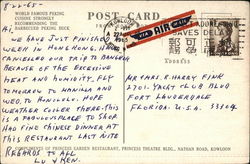 8-22-65-
WORLD FAMOUS PEKING
CUISINE STRONGLY
RECOMMENDED THE
BARBECUED PEKING DUCK
POST CARD
AIR MAIL
Hi,
WE HAVE JUST FINISHED A
WEEK IN HONG KONG. HAVE
CANCELLED OUR TRIP TO BANGKOK
BECAUSE OF THE EXCESSIVE
HEAT AND HUMIDITY. FLY
TOMORROW TO MANILA AND
WED. TO HONOLULU. HOPE
WEATHER COOLER THERE. THIS
IS A FABULOUS PLACE TO SHOP.
HAD FINE CHINESE DINNER AT
THIS RESTAURANT LAST NITE
REGARDS TO ALL
LU & KEN.
MR & MRS. R. HARRY FINK
2701 YACHT CLUB BLVD
FORT LAUDERDALE
FLORIDA. U.S. 33304
COMPLIMENTS OF PRINCESS GARDEN RESTAURANT, PRINCESS THEATRE BLDG., NATHAN ROAD, KOWLOON